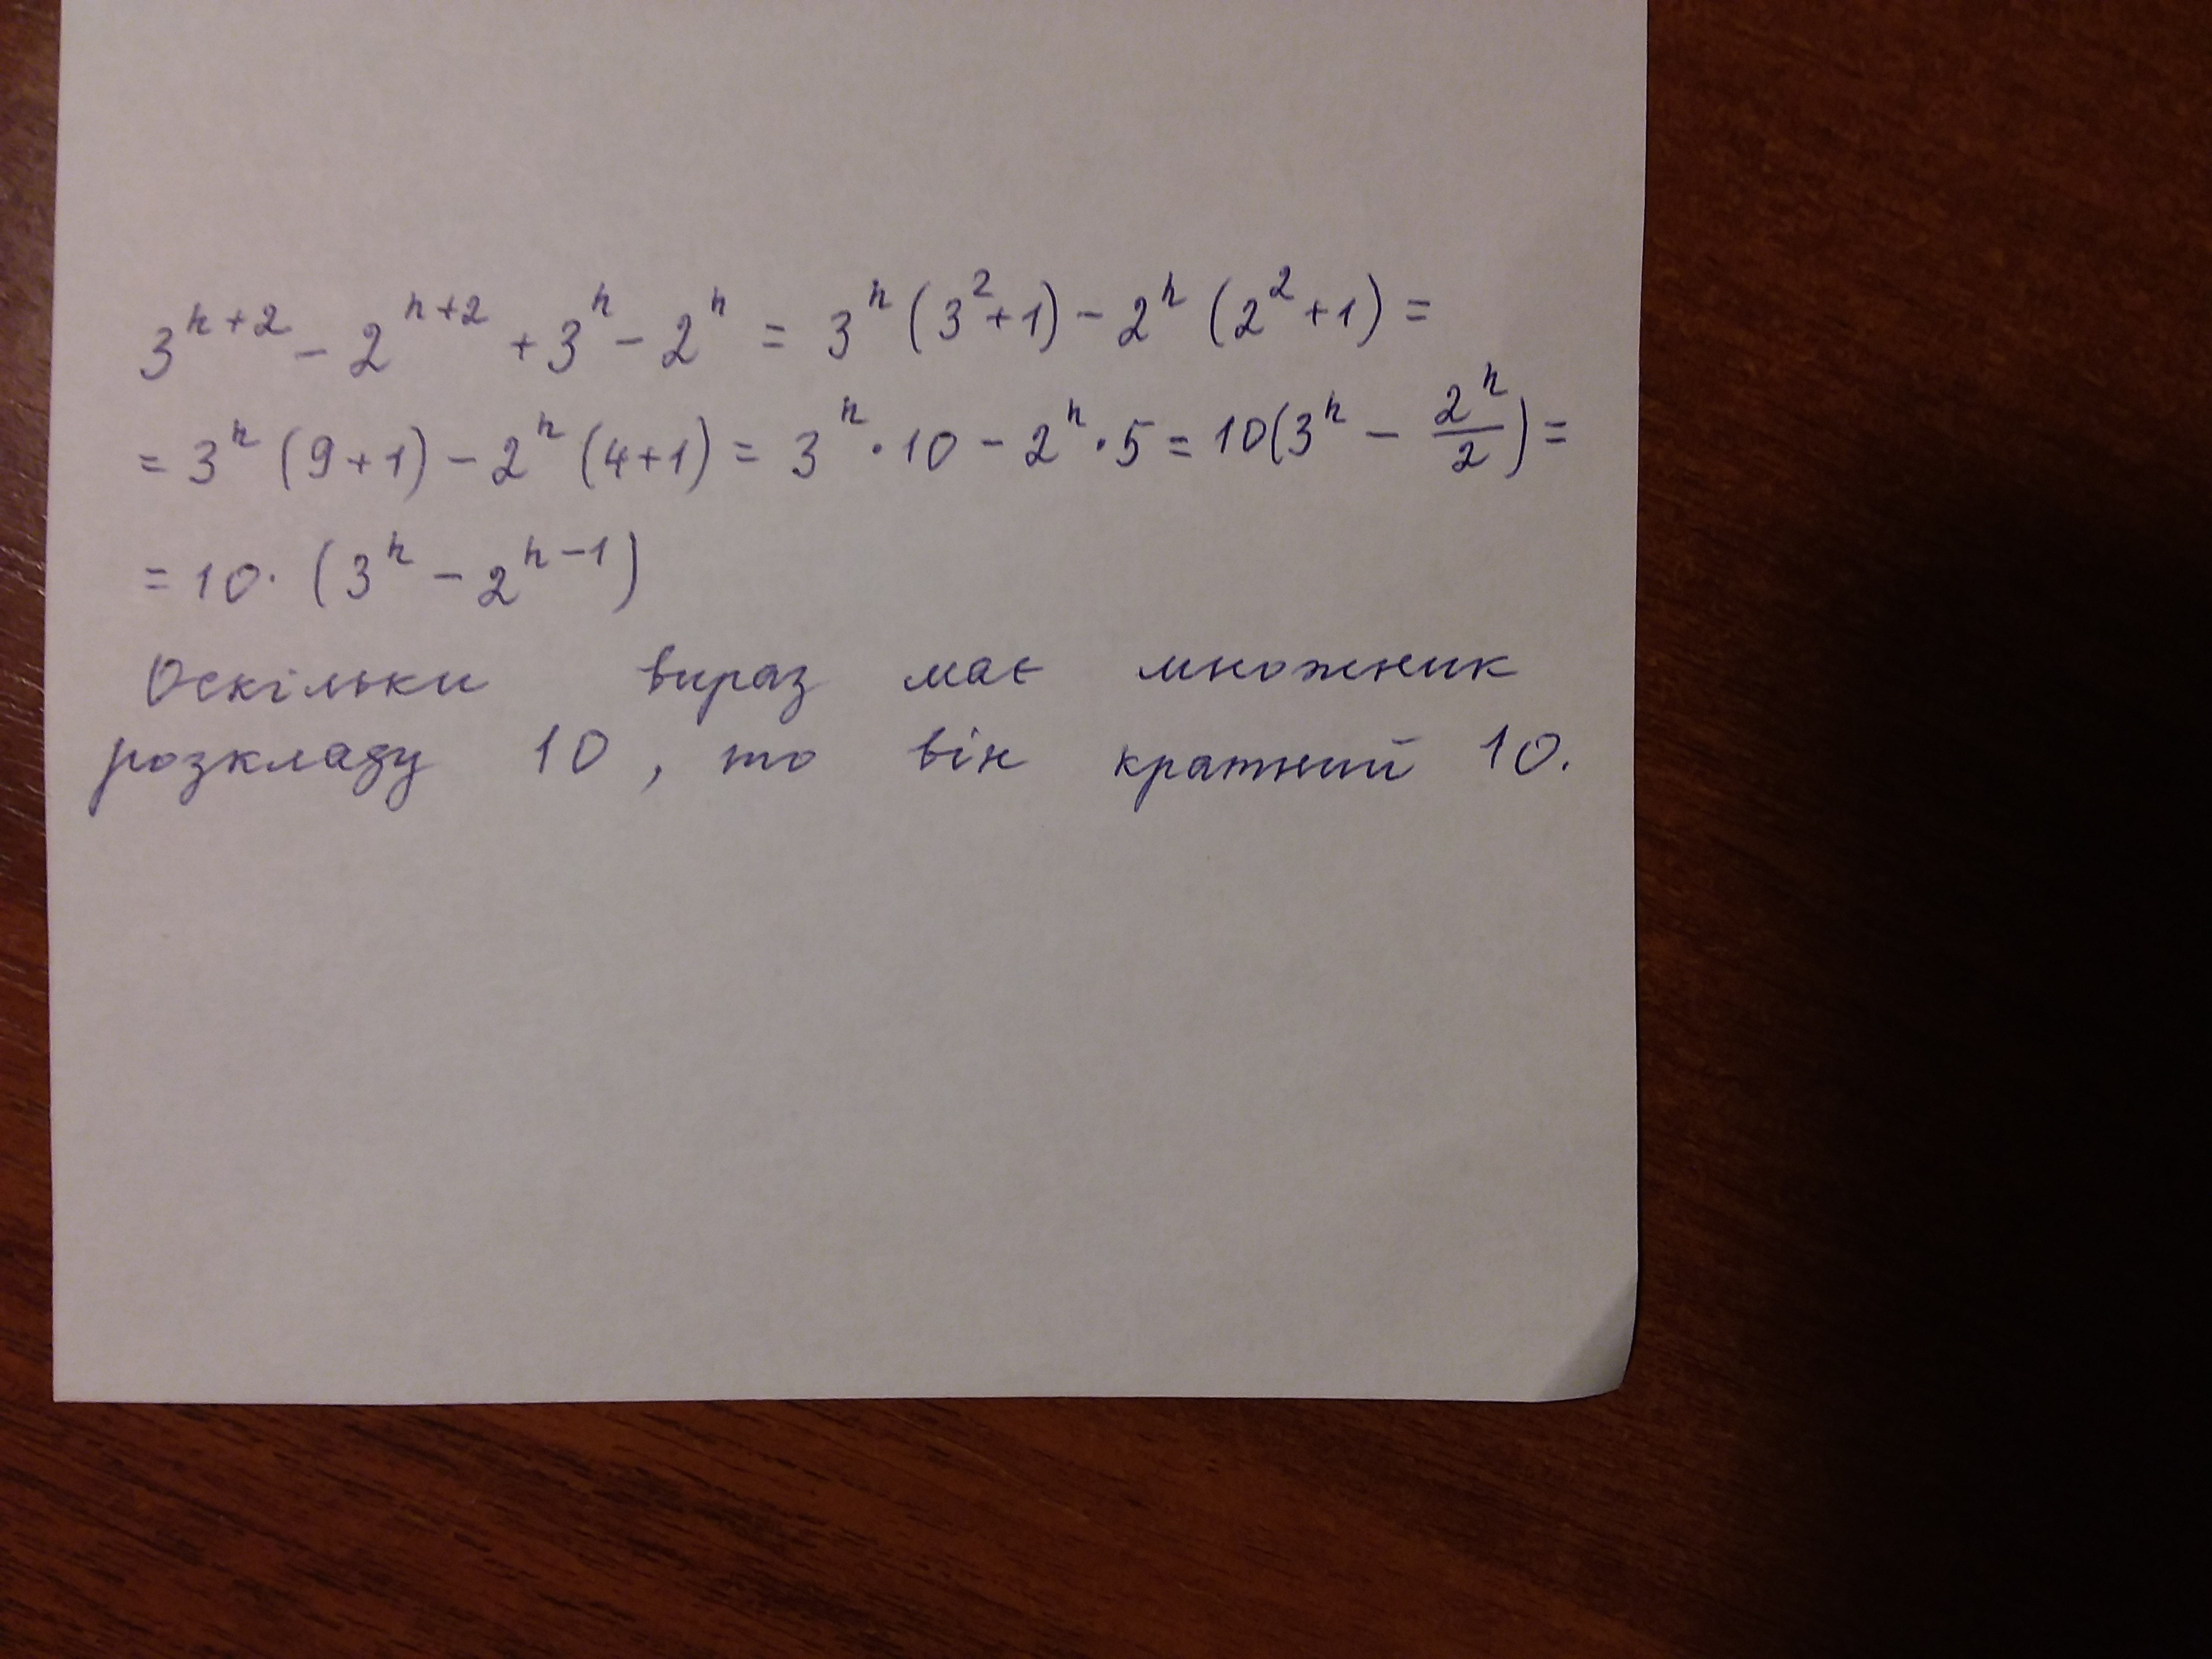 3^{n+2} - 2^{n+2} + 3^n - 2^n = 3^n (3^2+1) - 2^n (2^2+1) =
= 3^n (9+1) - 2^n (4+1) = 3^n · 10 - 2^n · 5 = 10(3^n - \frac{2^n}{2}) =
= 10 · (3^n - 2^{n-1})
Оскільки вираз має множник
розкладу 10, то він кратний 10.